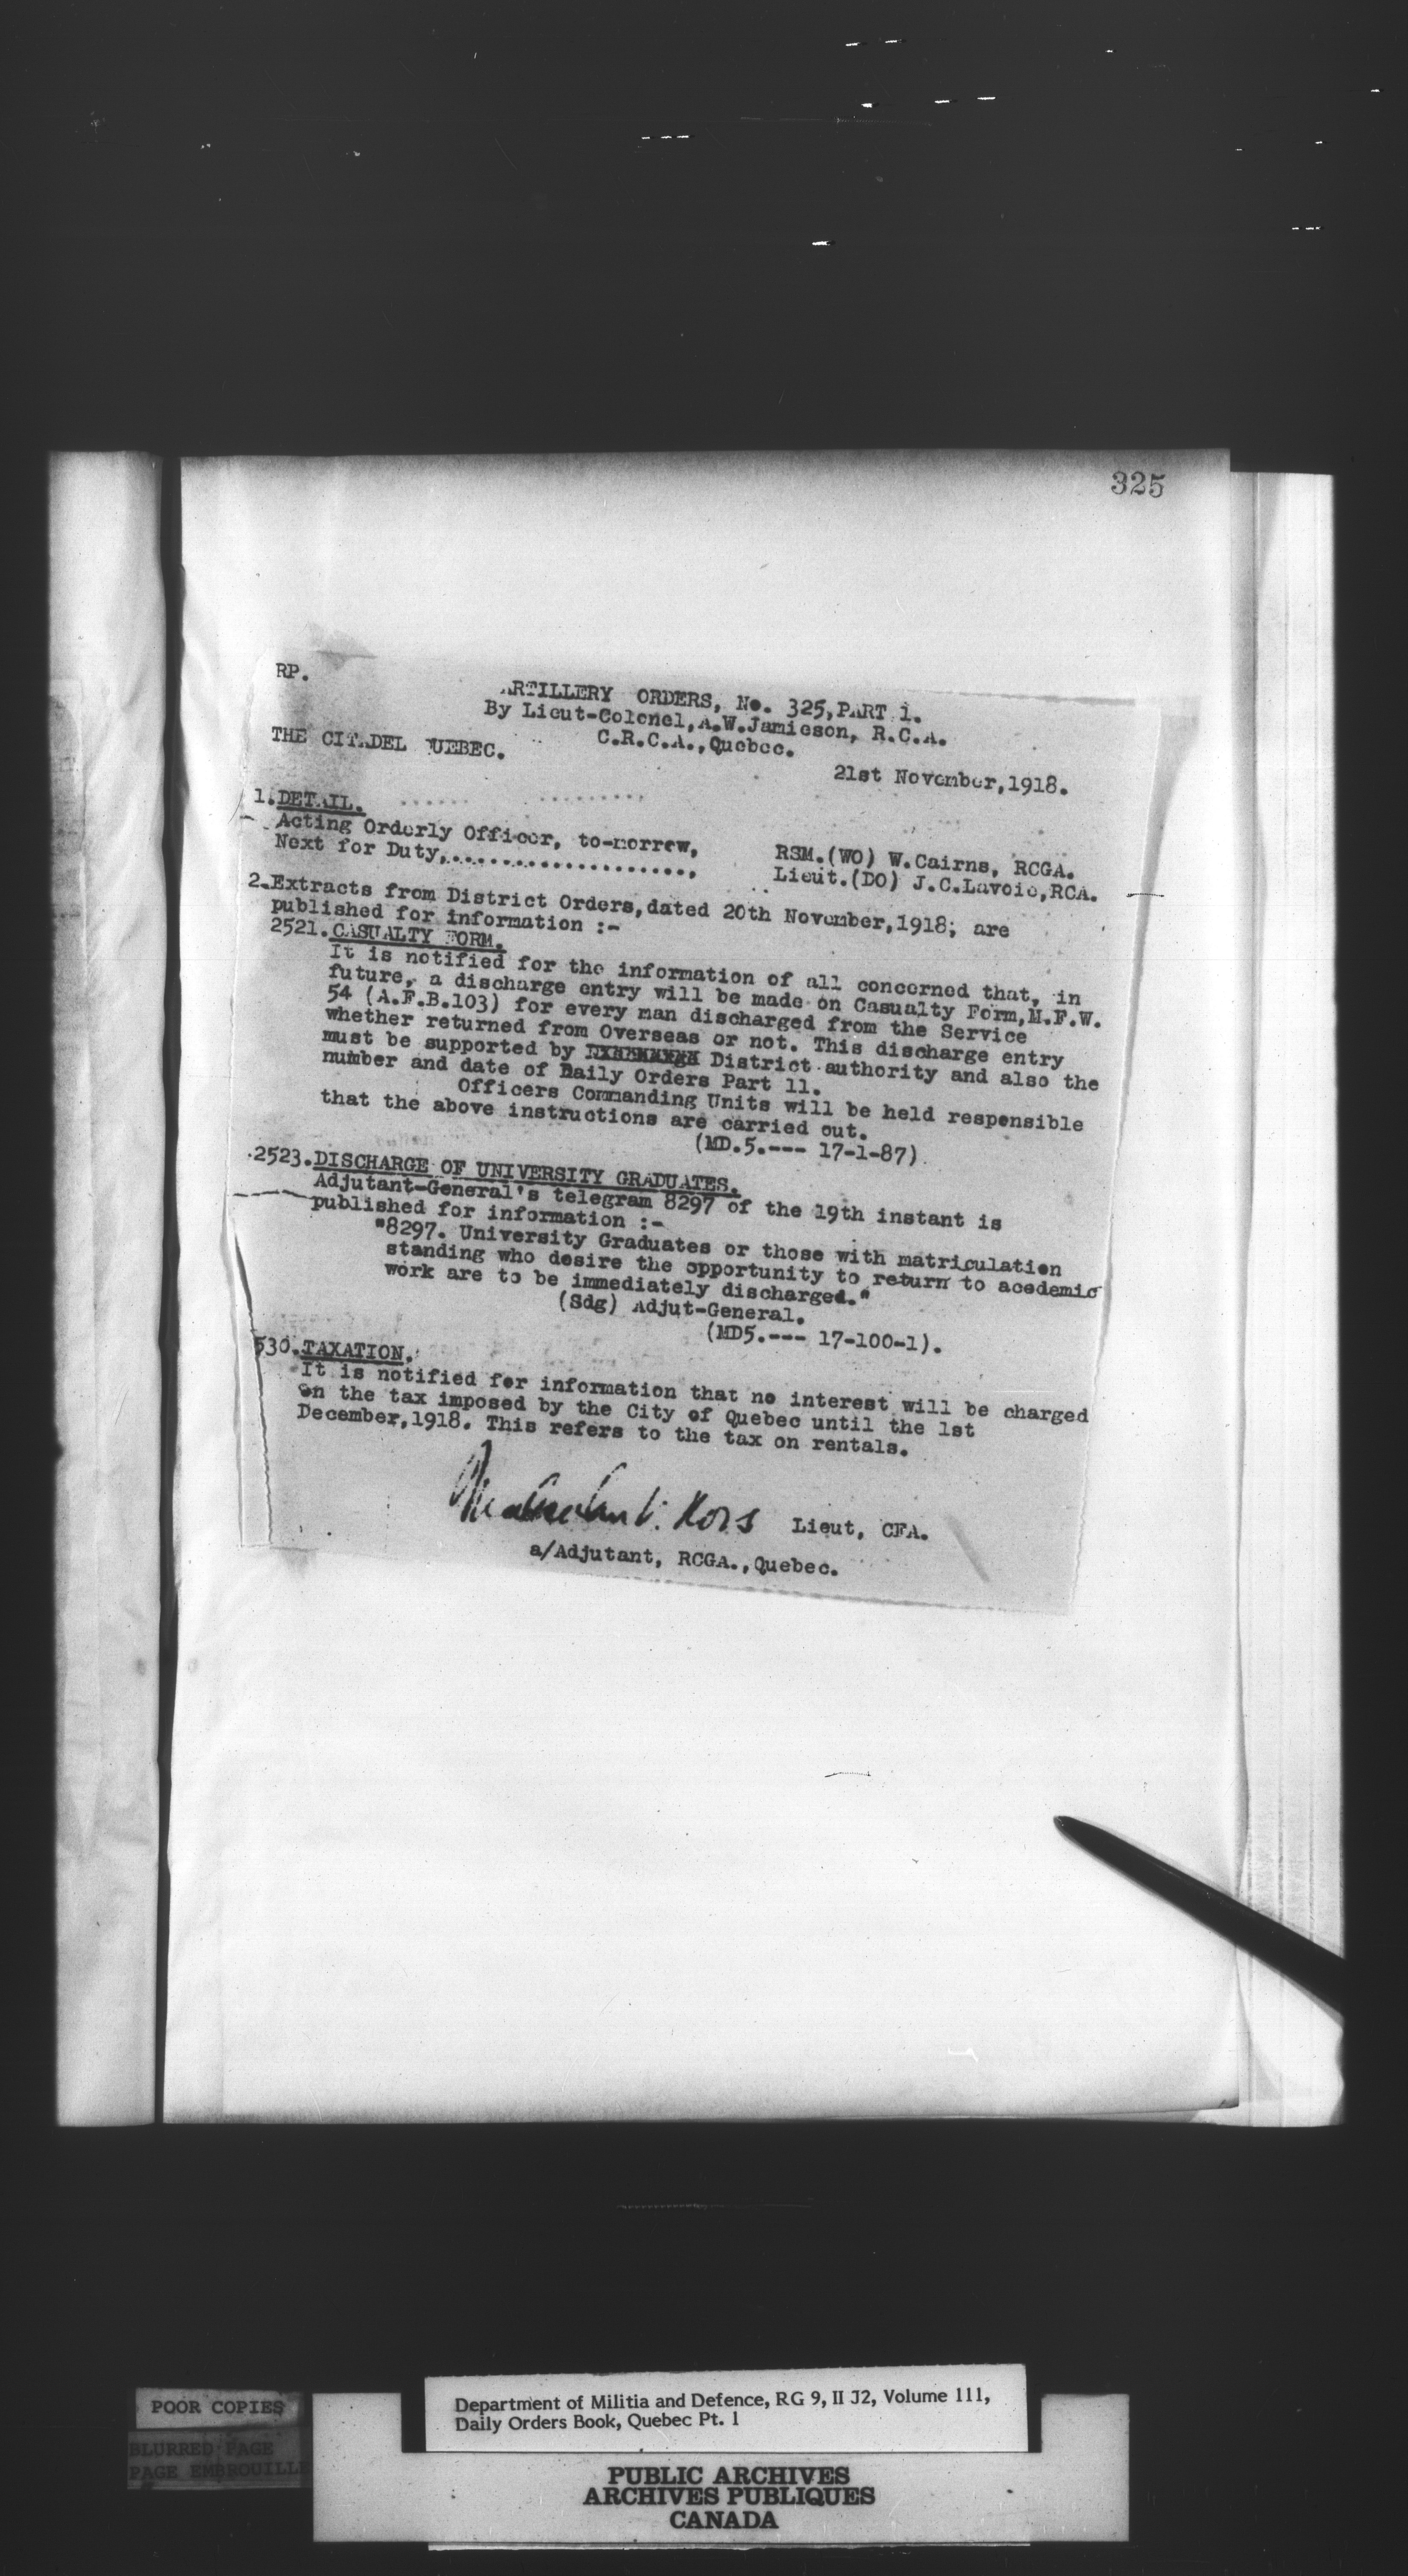 325
RP.
ARTILLERY ORDERS, No. 325, PART 1.
By Lieut-Colonel, A.W.Jamieson, R.C.A.
C.R.C.A., Quebec.
THE CITADEL QUEBEC.
21st November, 1918.
1. DETAIL.
Acting Orderly Officer, to-morrow, RSM.(WO) W.Cairns, RCGA.
Next for Duty,...................... Lieut.(DO) J.C.Lavoie, RCA.
2. Extracts from District Orders, dated 20th November, 1918; are
published for information :-
2521. CASUALTY FORM.
It is notified for the information of all concerned that, in
future, a discharge entry will be made on Casualty Form, M.F.W.
54 (A.F.B.103) for every man discharged from the Service
whether returned from Overseas or not. This discharge entry
must be supported by District authority and also the
number and date of Daily Orders Part 11.
Officers Commanding Units will be held responsible
that the above instructions are carried out.
(MD.5.--- 17-1-87)
2523. DISCHARGE OF UNIVERSITY GRADUATES.
Adjutant-General's telegram 8297 of the 19th instant is
published for information :-
"8297. University Graduates or those with matriculation
standing who desire the opportunity to return to acedemic
work are to be immediately discharged."
(Sdg) Adjut-General.
(MD5.--- 17-100-1).
530. TAXATION.
It is notified for information that no interest will be charged
on the tax imposed by the City of Quebec until the 1st
December, 1918. This refers to the tax on rentals.
Lieut, CFA.
a/Adjutant, RCGA., Quebec.
POOR COPIES
BLURRED PAGE
PAGE EMBROUILLE
Department of Militia and Defence, RG 9, II J2, Volume 111,
Daily Orders Book, Quebec Pt. 1
PUBLIC ARCHIVES
ARCHIVES PUBLIQUES
CANADA